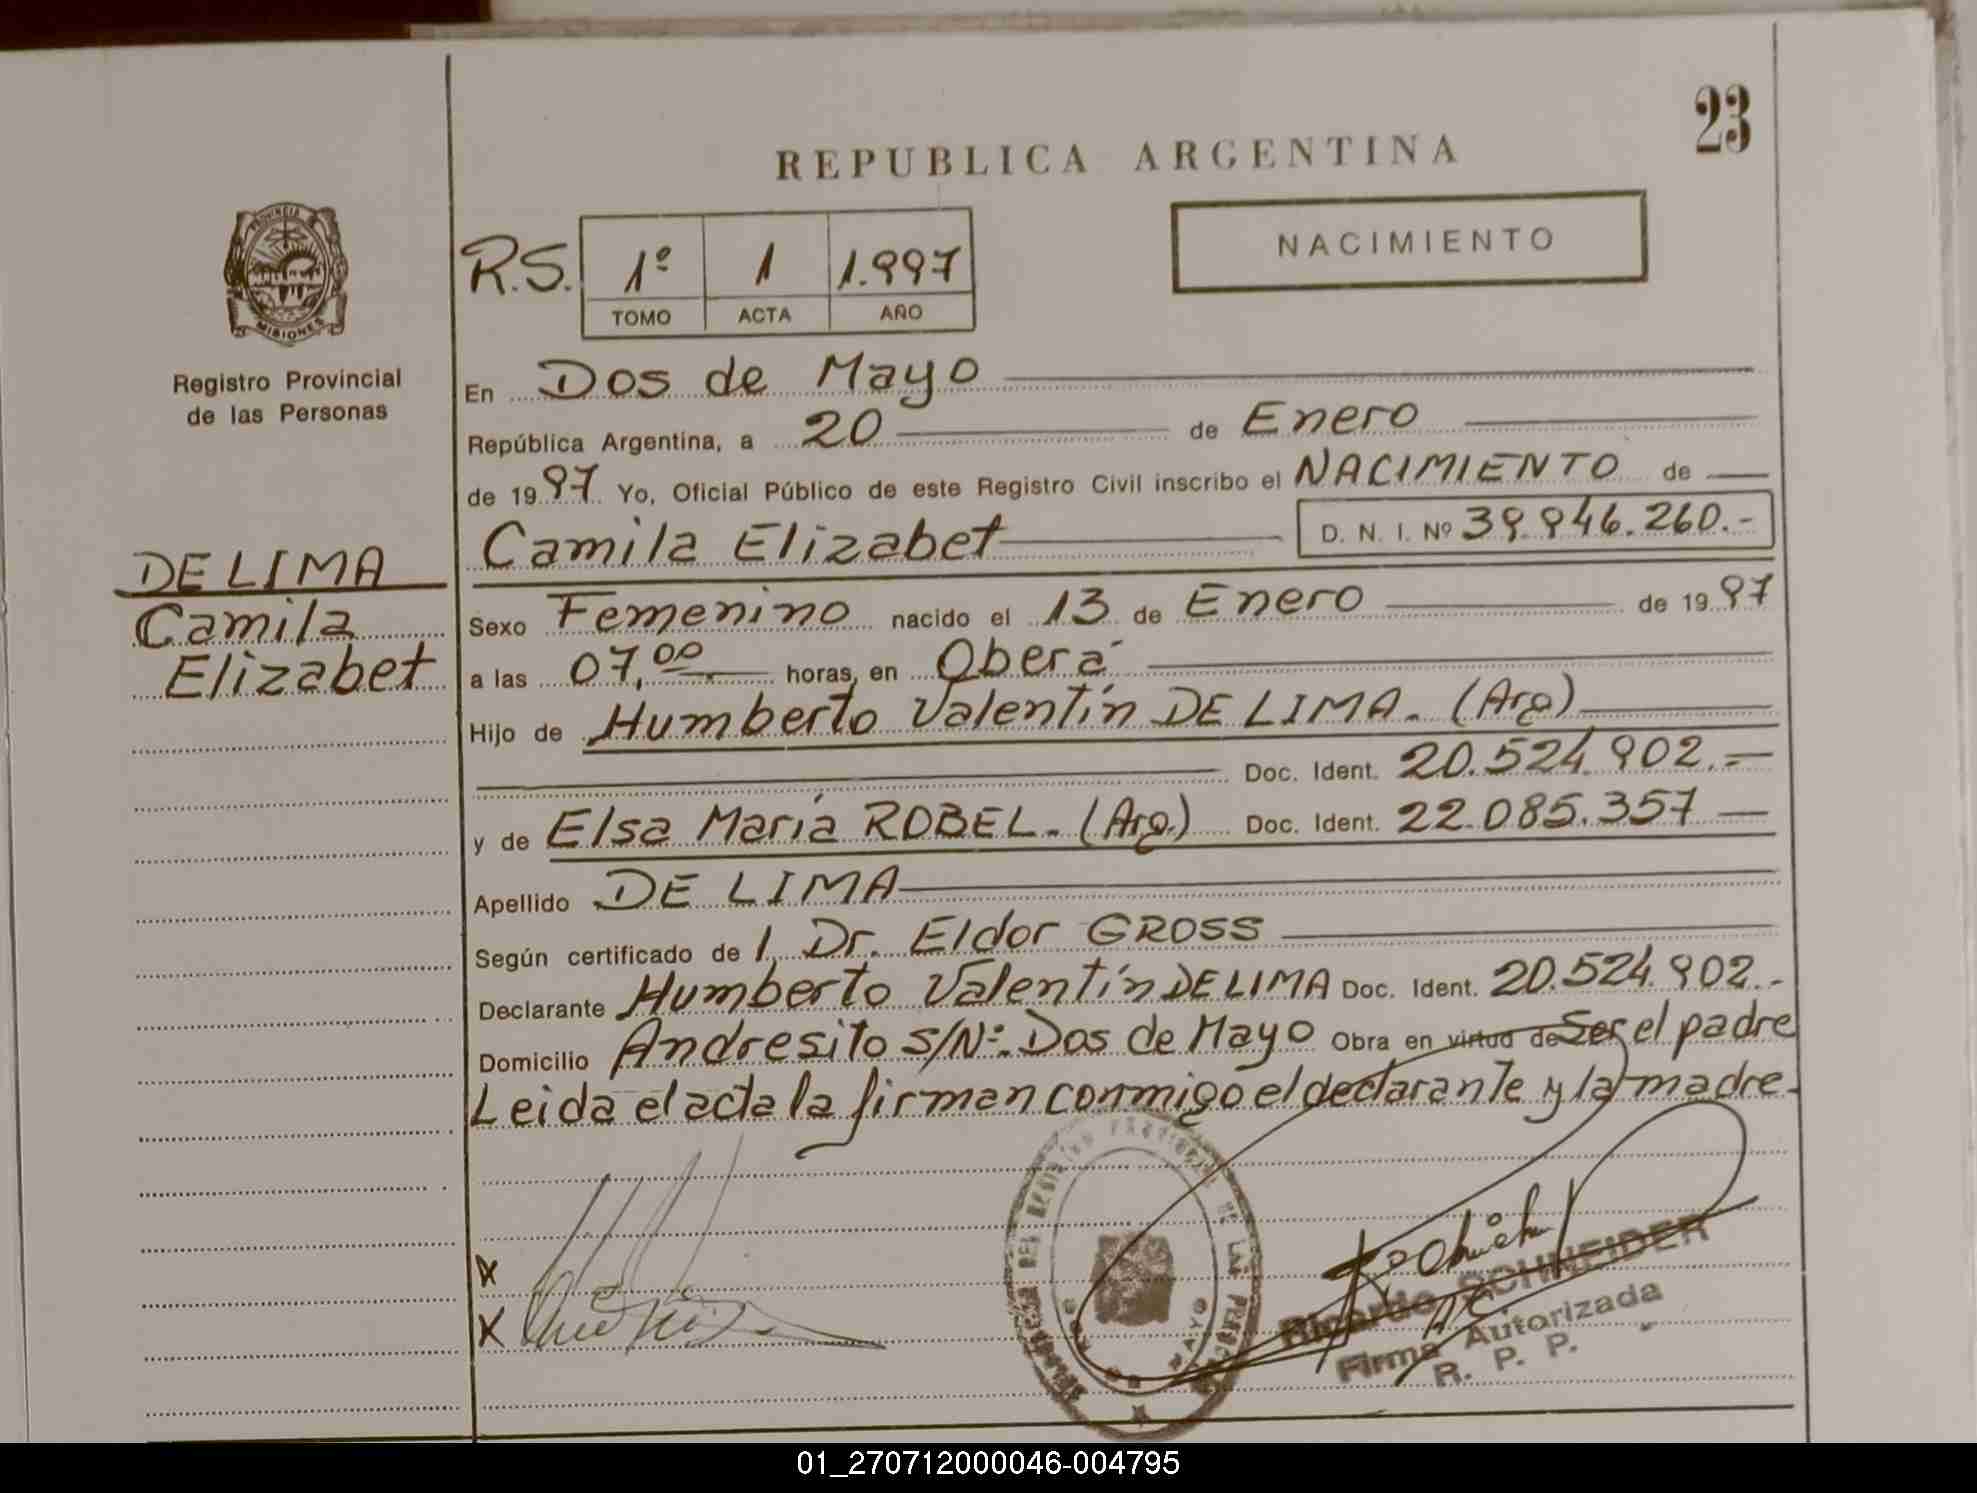 23
REPUBLICA ARGENTINA
NACIMIENTO
PROVINCIA DE
MISIONES
Registro Provincial
de las Personas
R.S. 1º 1 1.997
TOMO ACTA AÑO
En Dos de Mayo
República Argentina, a 20 de Enero
de 1997 Yo, Oficial Público de este Registro Civil inscribo el NACIMIENTO de
Camila Elizabet D. N. I. Nº 39.946.260.-
DE LIMA
Camila
Elizabet
Sexo Femenino nacido el 13 de Enero de 1997
a las 07,00 horas, en Oberá
Hijo de Humberto Valentín DE LIMA. (Arg)
Doc. Ident. 20.524.902.=
y de Elsa María ROBEL. (Arg.) Doc. Ident. 22.085.357
Apellido DE LIMA
Según certificado de l. Dr. Eldor GROSS
Declarante Humberto Valentín DE LIMA Doc. Ident. 20.524.902.-
Domicilio Andresito S/Nº. Dos de Mayo Obra en virtud de Ser el padre
Leida el acta la firman conmigo el declarante y la madre.
X
X
DEL REGISTRO PROVINCIAL DE LAS PERSONAS
DOS DE MAYO
Ricardo SCHNEIDER
Firma Autorizada
R. P. P.
01_270712000046-004795